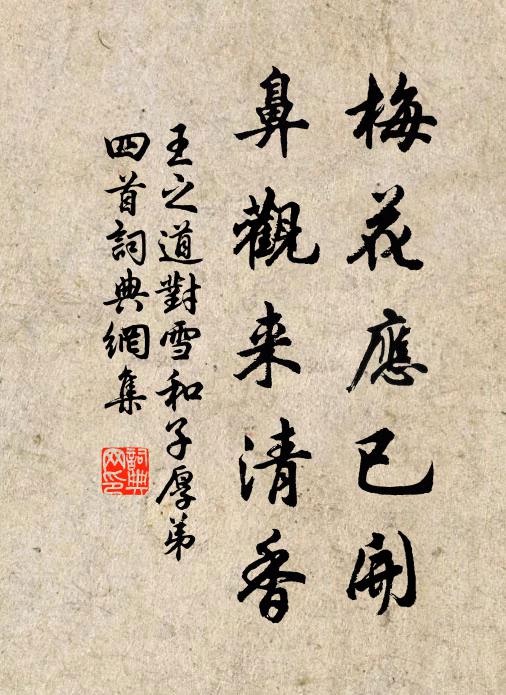 梅花應已開
鼻觀来清香
王之道對雪和子厚弟
四首詞典網集
詞典
网印